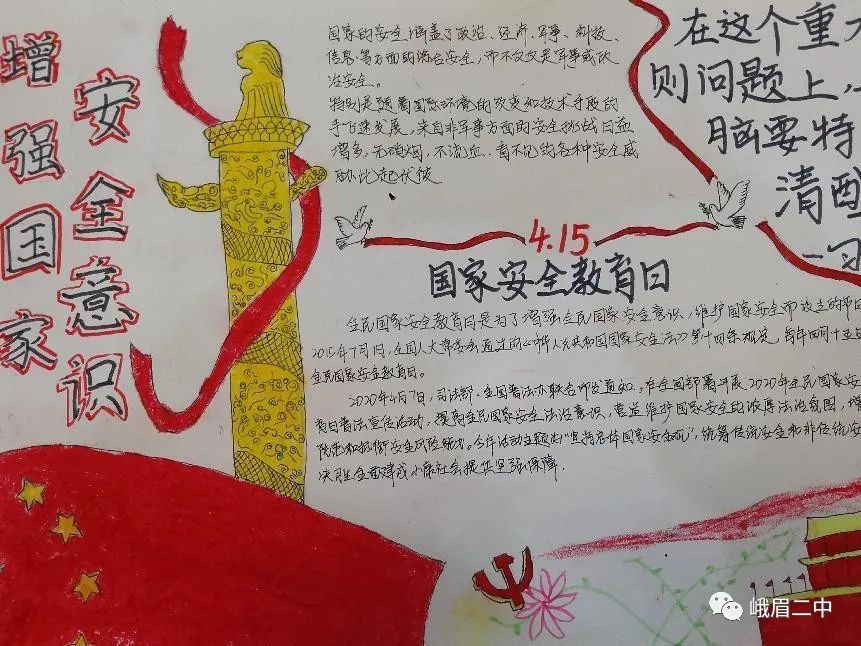 增强国家
安全意识
国家的安全涵盖了政治、经济、军事、科技、
信息等方面的综合安全,而不仅仅是军事或政
治安全。
特别是随着国际环境的改变和技术手段的
飞速发展,来自非军事方面的安全挑战日益
增多,无硝烟、不流血、看不见的各种安全威
胁此起彼伏
在这个重大
则问题上,
脑要特
清醒
一刁
4.15
国家安全教育日
全民国家安全教育日是为了增强全民国家安全意识,维护国家安全而设立的节日
2015年7月1日,全国人大常委会通过的《中华人民共和国国家安全法》第十四条规定,每年四月十五日
全民国家安全教育日。
2020年4月7日,司法部、全国普法办联合印发通知,在全国部署开展2020年全民国家安
育日普法宣传活动,提高全民国家安全法治意识,营造维护国家安全的浓厚法治氛围,增
防范和抵御安全风险能力。今年活动主题为"坚持总体国家安全观",统筹传统安全和非传统安
决胜全面建成小康社会提供坚强保障.
峨眉二中